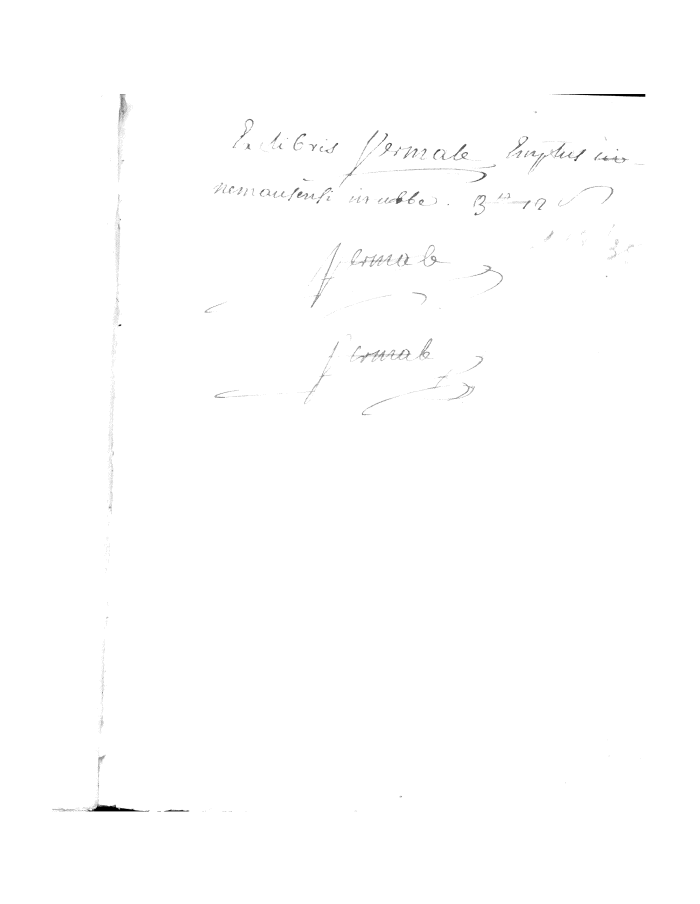 Ex libris Vermale Emptus in
nemausensi in urbe. 3
Vermale
Vermale